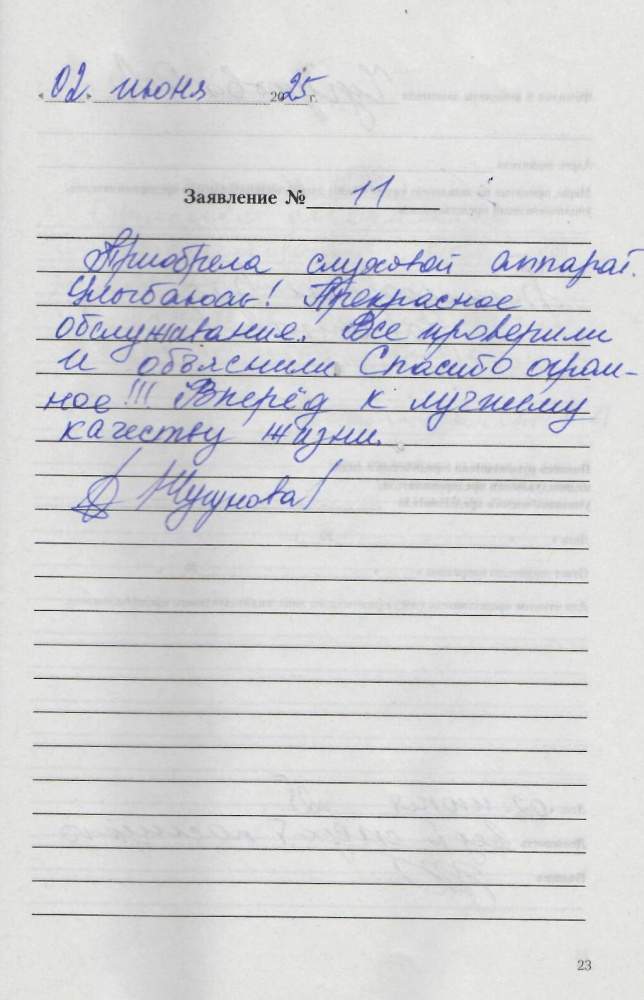 «02» июня 2025 г.
Заявление № 11
Приобрела слуховой аппарат.
Улыбаюсь! Прекрасное
обслуживание. Все проверили
и объяснили. Спасибо огром-
ное!!! Вперёд к лучшему
качеству жизни.
23